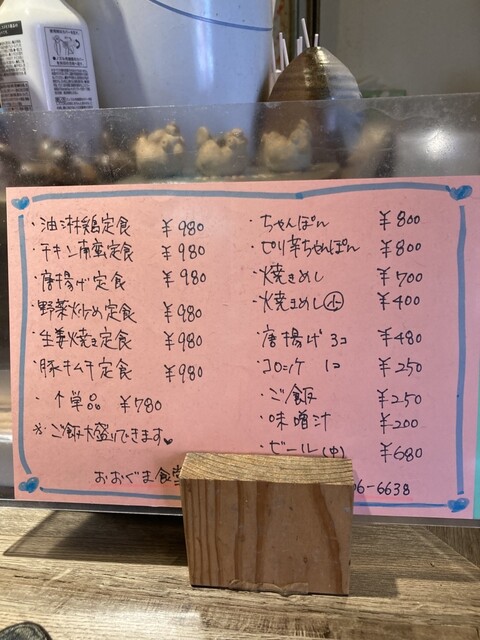 ・油淋鶏定食 ¥980
・チキン南蛮定食 ¥980
・唐揚げ定食 ¥980
・野菜炒め定食 ¥980
・生姜焼き定食 ¥980
・豚キムチ定食 ¥980
・↑単品 ¥780
※ご飯大盛りできます♥
・ちゃんぽん ¥800
・ピリ辛ちゃんぽん ¥800
・焼きめし ¥700
・焼きめし㊥ ¥400
・唐揚げ 3コ ¥480
・コロッケ 1コ ¥250
・ご飯 ¥250
・味噌汁 ¥200
・ビール(中) ¥680
おおぐま食堂
6-6638